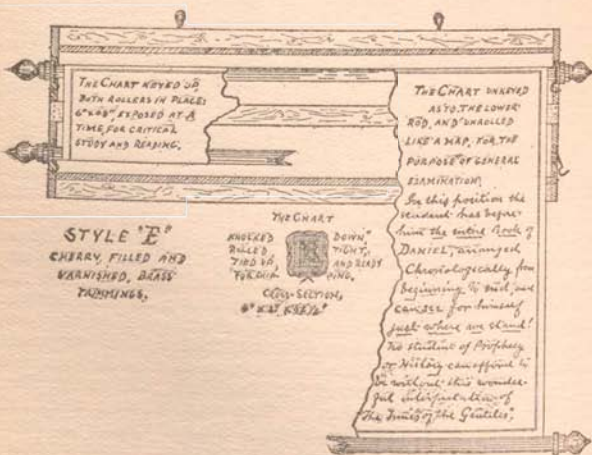 THE CHART KEYED UP,
BOTH ROLLERS IN PLACE:
EXPOSED AT A
TIME, FOR CRITICAL
STUDY AND READING.
THE CHART UNKEYED
AS TO THE LOWER
ROD, AND UNROLLED
LIKE A MAP, FOR THE
PURPOSE OF GENERAL
EXAMINATION.
In this position the
student has before
him the entire Book of
DANIEL, arranged
Chronologically from
beginning to end, and
can see for himself
just where we stand!
No student of Prophecy
or History can afford to
be without this wonder-
ful interpretation of
"The Times of the Gentiles".
STYLE "E"
CHERRY, FILLED AND
VARNISHED, BRASS
TRIMMINGS.
THE CHART
KNOCKED DOWN
ROLLED TIGHT,
TIED UP, AND READY
FOR SHIP PING.
CROSS-SECTION,